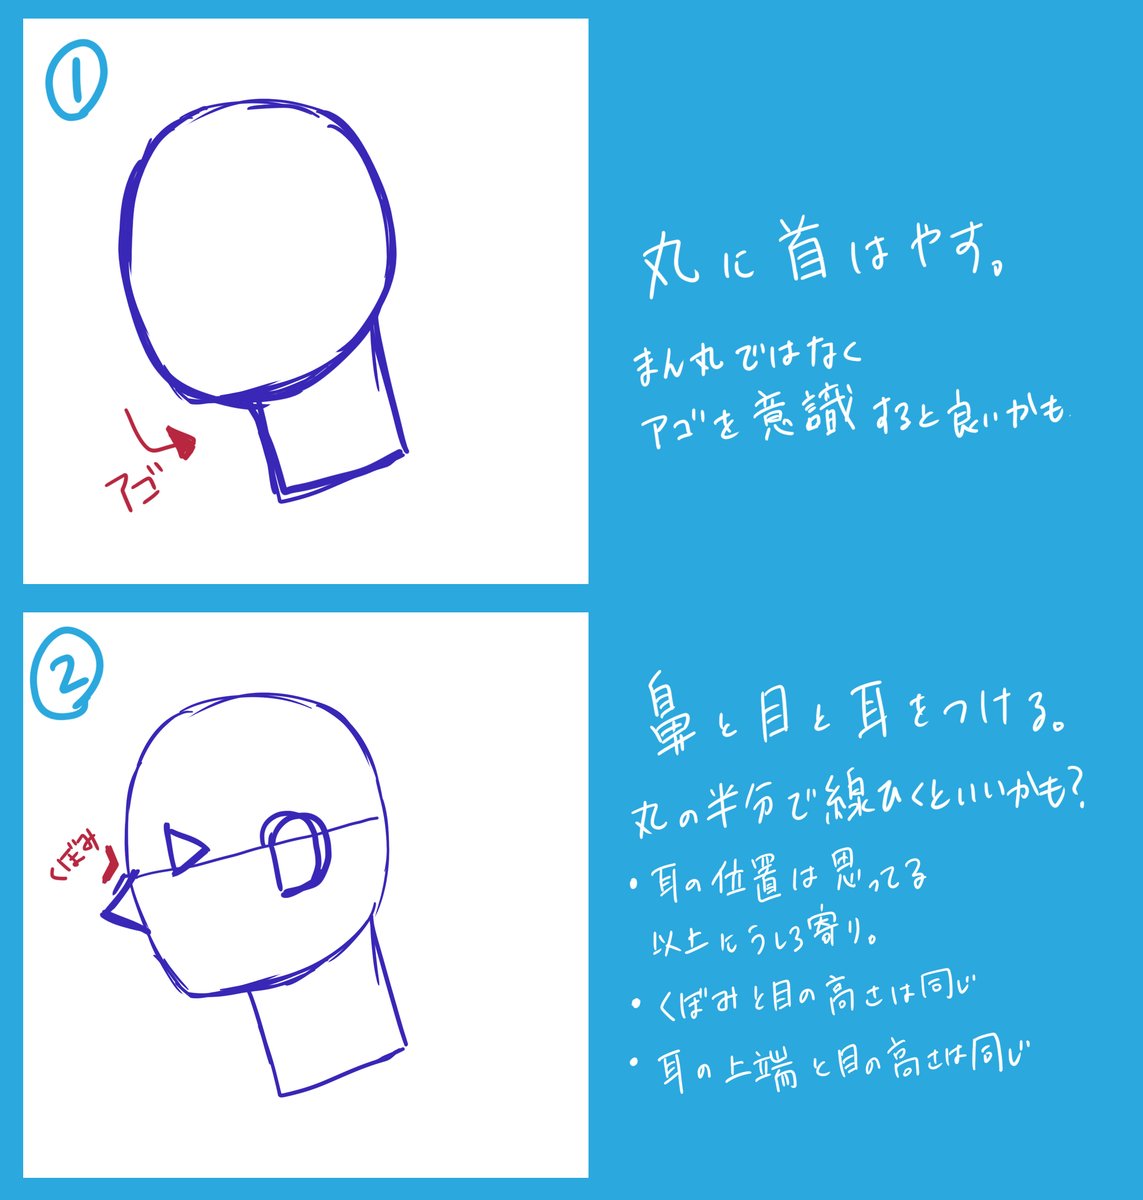 ①
アゴ
丸に首はやす。
まん丸ではなく
アゴを意識すると良いかも
②
くぼみ
鼻と目と耳をつける。
丸の半分で線ひくといいかも?
・耳の位置は思ってる
以上にうしろ寄り。
・くぼみと目の高さは同じ
・耳の上端と目の高さは同じ